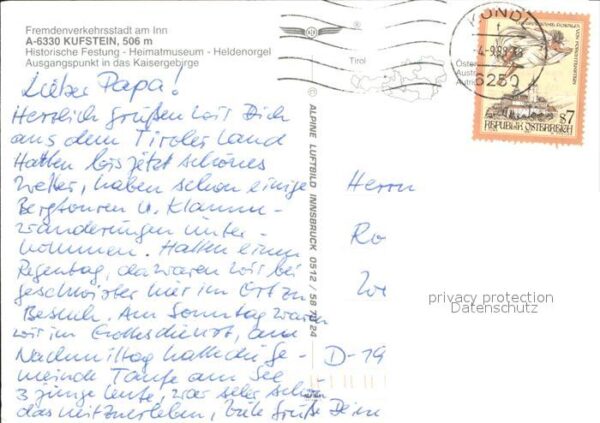 Fremdenverkehrsstadt am Inn
A-6330 KUFSTEIN, 506 m
Historische Festung - Heimatmuseum - Heldenorgel
Ausgangspunkt in das Kaisergebirge
Lieber Papa!
Herzlich grüßen wir Dich
aus dem Tiroler Land
Hatten bis jetzt schönes
Wetter, haben schon einige
Bergtouren u. Klamm-
wanderungen unter-
nommen. Hatten einen
Regentag, da waren wir bei
Geschwister hier im Ort zu
Besuch. Am Sonntag waren
wir im Gottesdienst, am
Nachmittag hatte die Ge-
meinde Taufe am See
3 junge Leute, war sehr schön
das mitzuerleben, viele Grüße Deine
© ALPINE LUFTBILD INNSBRUCK 0512 / 58 24
Tirol
KUNDL
6250
S7
REPUBLIK ÖSTERREICH
Herrn
Ro
We
D-79
privacy protection
Datenschutz